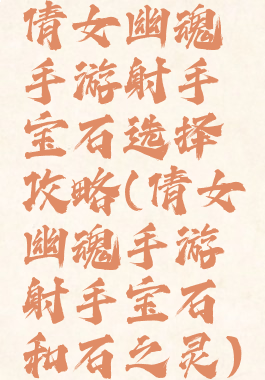 倩女幽魂
手游射手
宝石选择
攻略(倩女
幽魂手游
射手宝石
和石之灵)